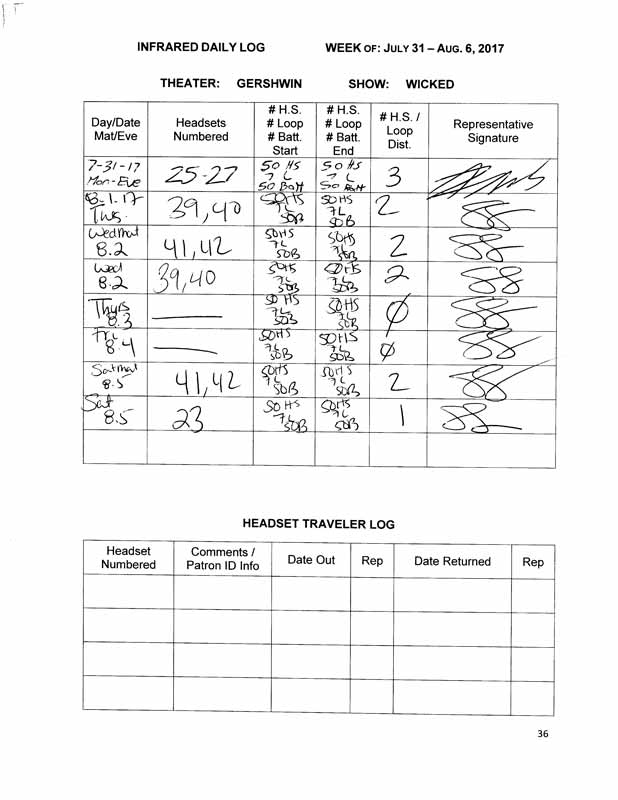 INFRARED DAILY LOG WEEK OF: JULY 31 – AUG. 6, 2017
THEATER: GERSHWIN SHOW: WICKED
Day/Date Mat/Eve Headsets Numbered # H.S. # Loop # Batt. Start # H.S. # Loop # Batt. End # H.S. / Loop Dist. Representative Signature
7-31-17 Mon-Eve 25-27 50 HS 7 L 50 Batt 50 HS 7 L 50 Batt 3
8-1.17 Tues. 39,40 50HS 7L 50B 50HS 7L 50B 2
Wed Mat 8.2 41,42 50HS 7L 50B 50HS 7L 50B 2
Wed 8.2 39,40 50HS 7L 50B 50HS 7L 50B 2
Thurs 8.3 — 50 HS 7L 50B 50HS 7L 50B 0
Fri 8.4 — 50HS 7L 50B 50HS 7L 50B 0
Sat mat 8.5 41,42 50HS 7L 50B 50HS 7L 50B 2
Sat 8.5 23 50HS 7L 50B 50HS 7L 50B 1
HEADSET TRAVELER LOG
Headset Numbered Comments / Patron ID Info Date Out Rep Date Returned Rep
36